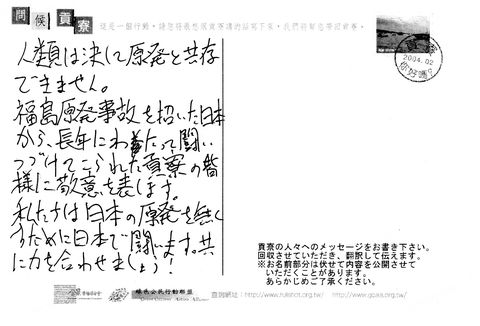 問候貢寮
這是一個行動，請您將最想跟貢寮講的話寫下來，我們將幫您寄給貢寮。
人類は決して原発と共存
できません。
福島原発事故を招いた日本
から、長年にわたって闘い
つづけてこられた貢寮の皆
様に敬意を表します。
私たちは日本の原発を無く
すために日本で闘います。共
に力を合わせましょう!
貢寮
2004.02
你好嗎?
貢寮の人々へのメッセージをお書き下さい。
回収させていただき、翻訳して伝えます。
※お名前部分は伏せて内容を公開させて
いただくことがあります。
あらかじめご了承ください。
綠色公民行動聯盟
Green Citizens' Action Alliance
查詢網址：http://www.runshot.org.tw/ http://www.gcaa.org.tw/